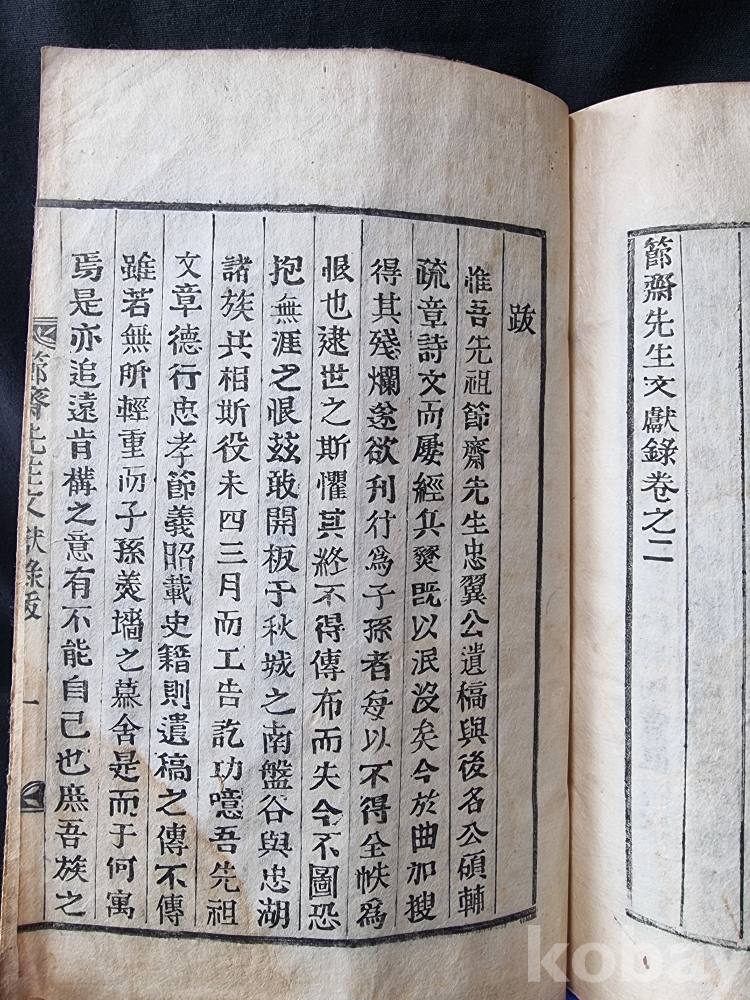 節齋先生文獻錄卷之二
跋
惟吾先祖節齋先生忠翼公遺稿與後名公碩輔
疏章詩文而屢經兵燹旣以泯沒矣今於曲加搜
得其殘爛遂欲刊行爲子孫者每以不得全帙爲
恨也逮世之斯懼其終不得傳布而失今不圖恐
抱無涯之恨玆敢開板于秋城之南盤谷與忠湖
諸族共相斯役未四三月而工告訖功噫吾先祖
文章德行忠孝節義昭載史籍則遺稿之傳不傳
雖若無所輕重而子孫羹墻之慕舍是而于何寓
焉是亦追遠肯構之意有不能自已也庶吾族之
節齋先生文獻錄跋
一
kobay